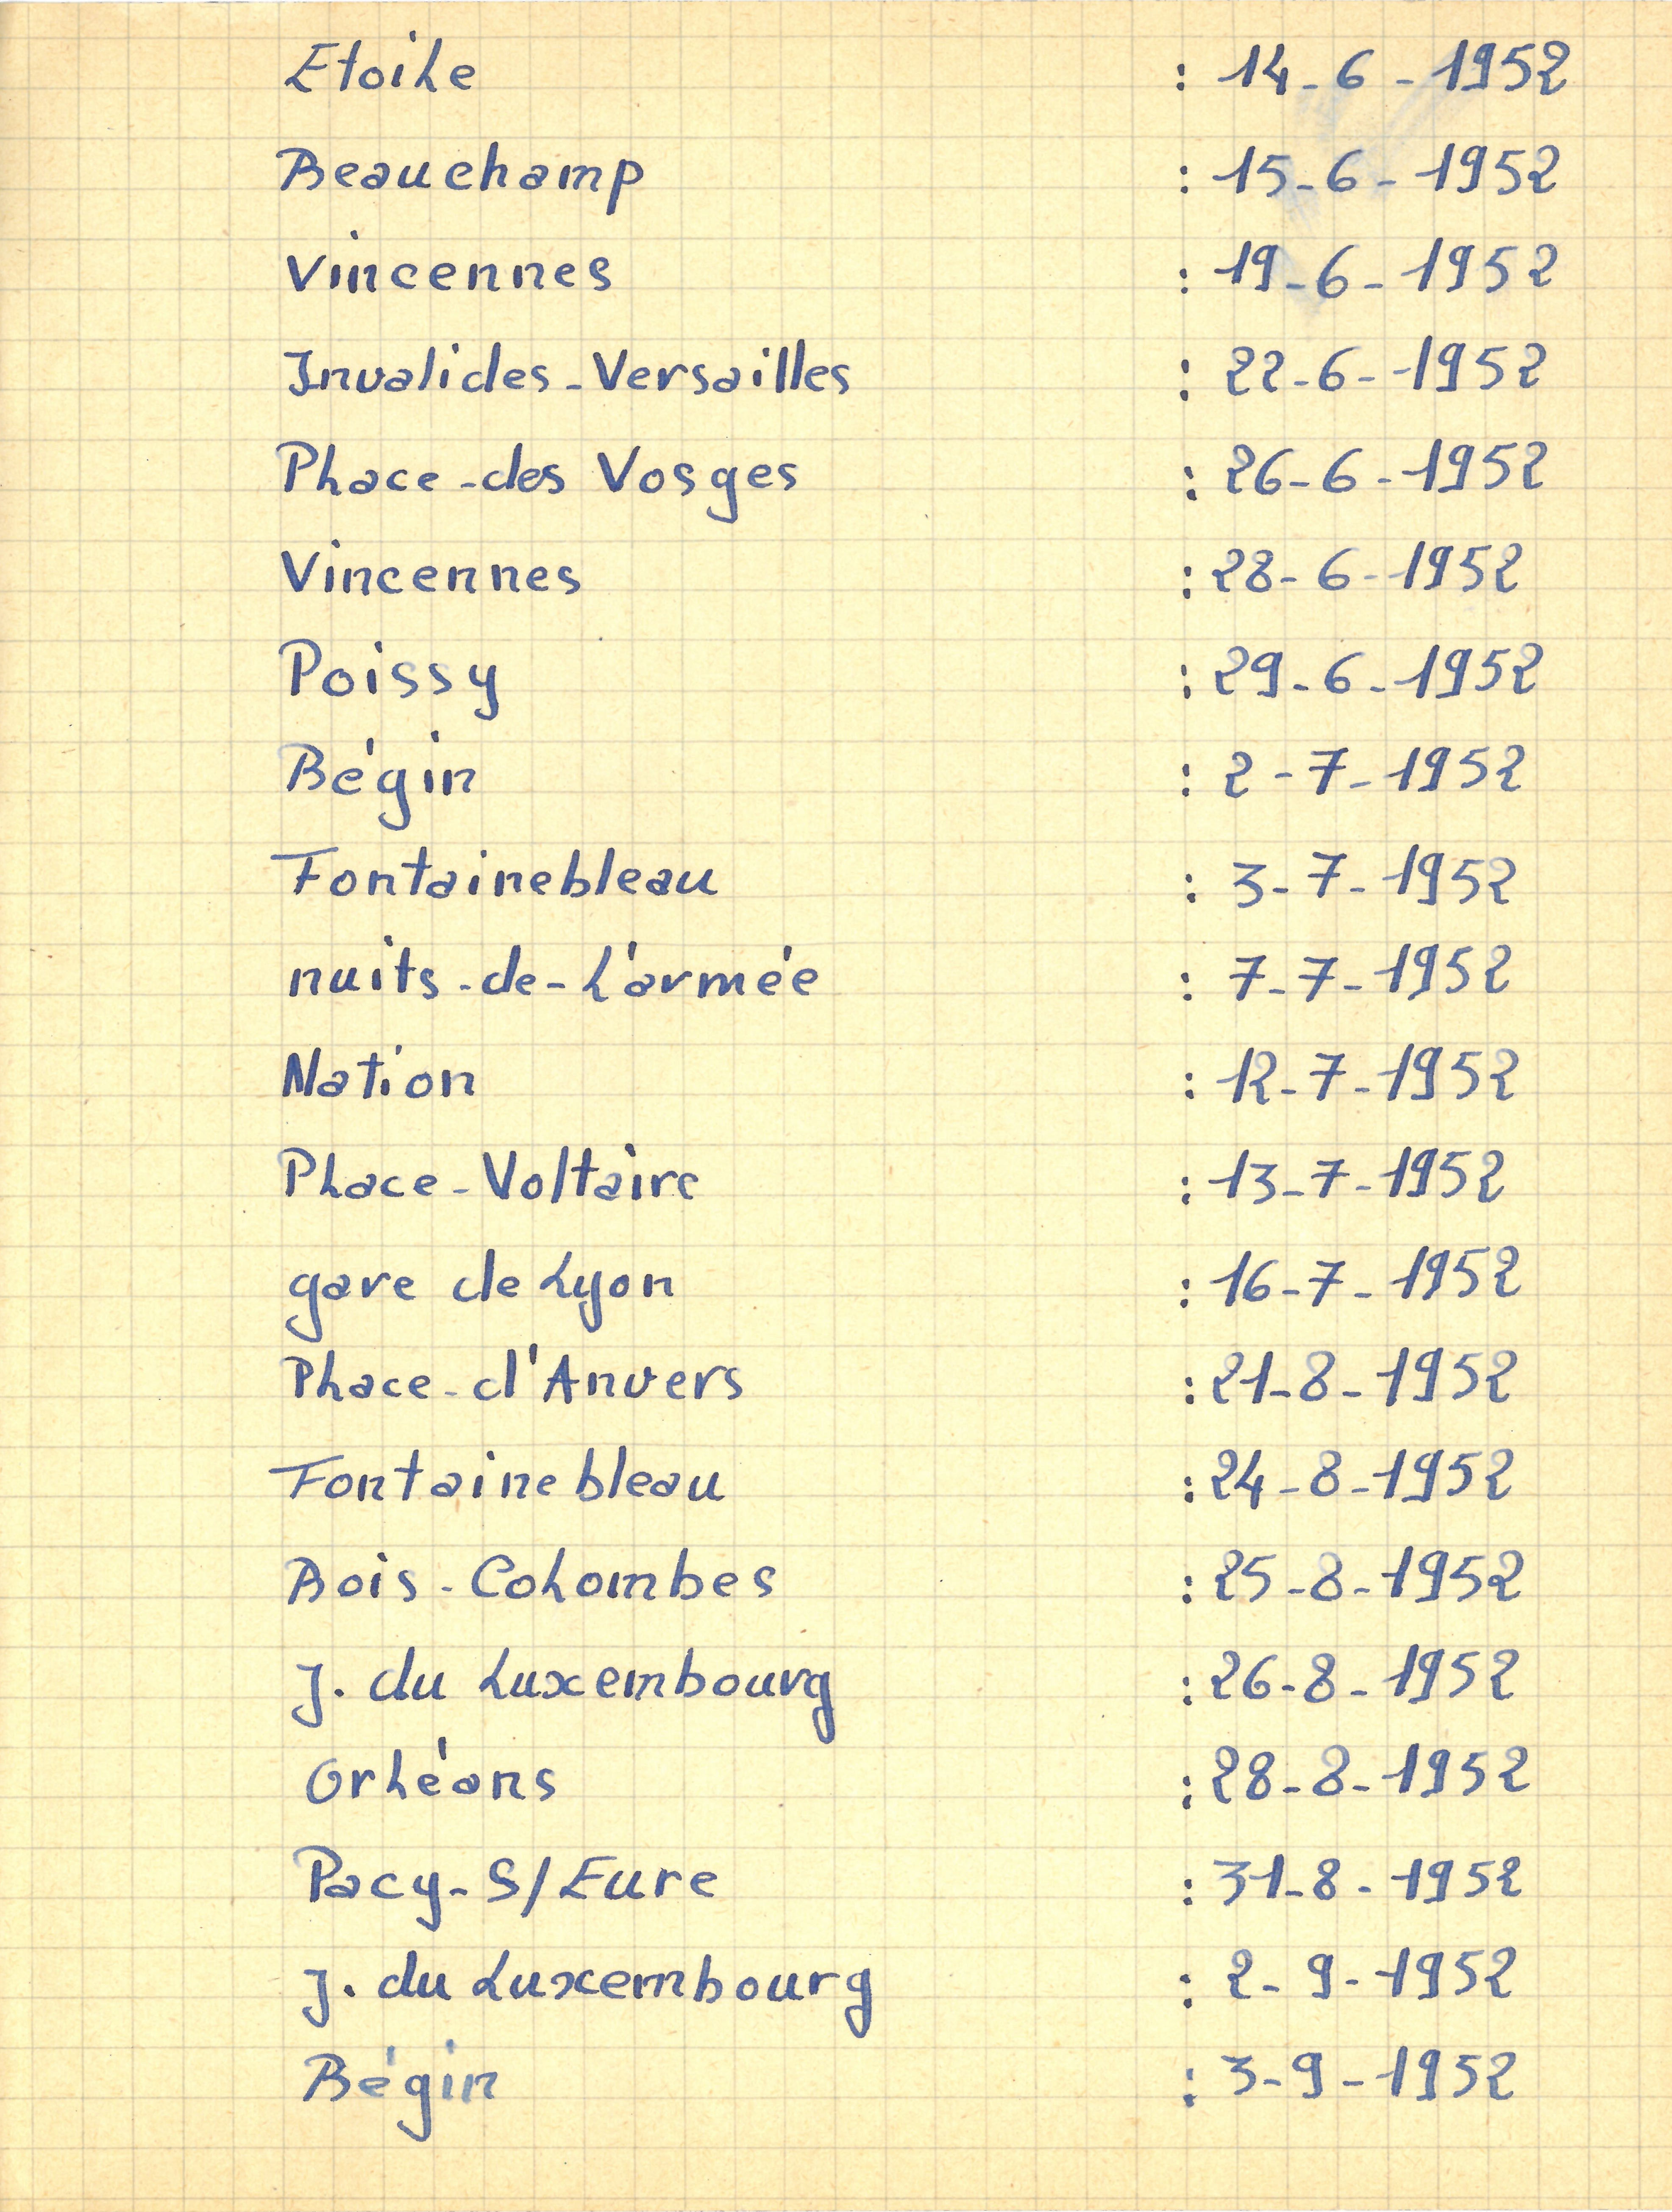 Etoile : 14-6-1952
Beauchamp : 15-6-1952
Vincennes : 19-6-1952
Invalides-Versailles : 22-6-1952
Place-des Vosges : 26-6-1952
Vincennes : 28-6-1952
Poissy : 29-6-1952
Bégin : 2-7-1952
Fontainebleau : 3-7-1952
nuits-de-L'armée : 7-7-1952
Nation : 12-7-1952
Place-Voltaire : 13-7-1952
gare de Lyon : 16-7-1952
Place-d'Anvers : 21-8-1952
Fontainebleau : 24-8-1952
Bois-Colombes : 25-8-1952
J. du Luxembourg : 26-8-1952
Orléans : 28-8-1952
Pacy-S/Eure : 31-8-1952
J. du Luxembourg : 2-9-1952
Bégin : 3-9-1952